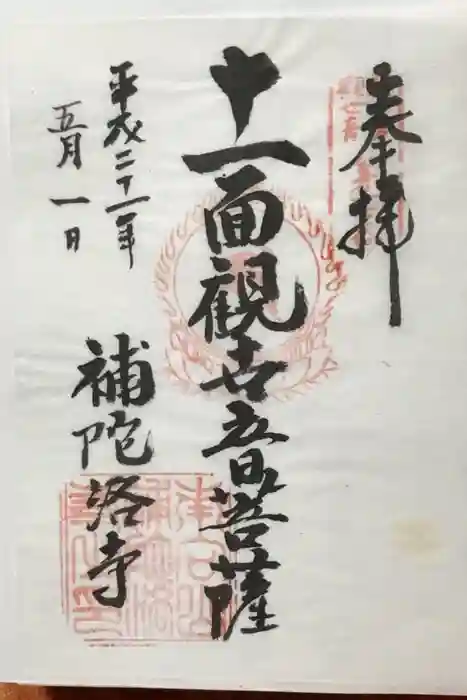 奉拝
十一面觀世音菩薩
平成二十一年
五月一日
補陀洛寺